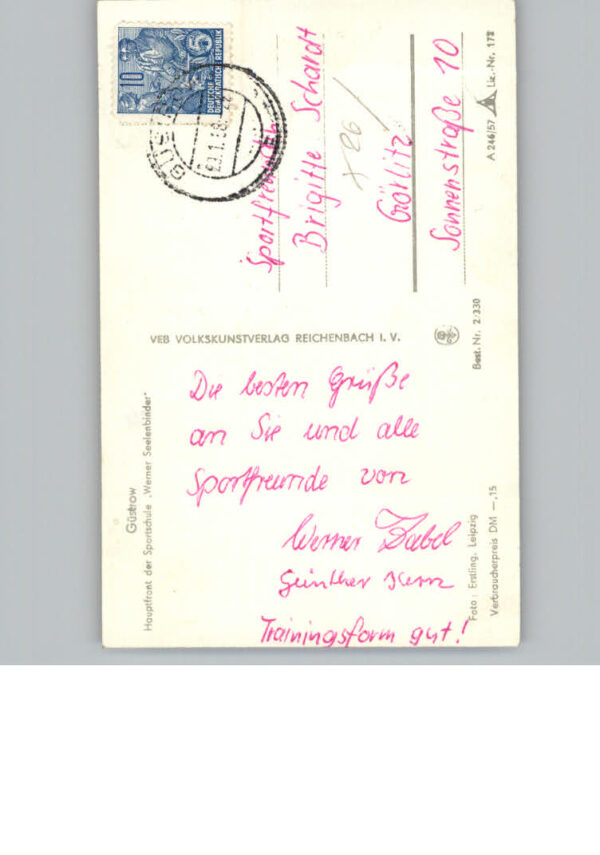 5
10
DEUTSCHE
DEMOKRATISCHE REPUBLIK
GÜSTROW
Sportfreundin
Brigitte Schardt
x 26 /
Görlitz
Sonnenstraße 10
A 246/57
Liz.-Nr. 172
VEB VOLKSKUNSTVERLAG REICHENBACH I. V.
Best. Nr. 2/330
Güstrow
Hauptfront der Sportschule „Werner Seelenbinder"
Die besten Grüße
an Sie und alle
Sportfreunde von
Werner Zabel
Günther Kern
Trainingsform gut!
Foto: Erstling, Leipzig
Verbraucherpreis DM —,15